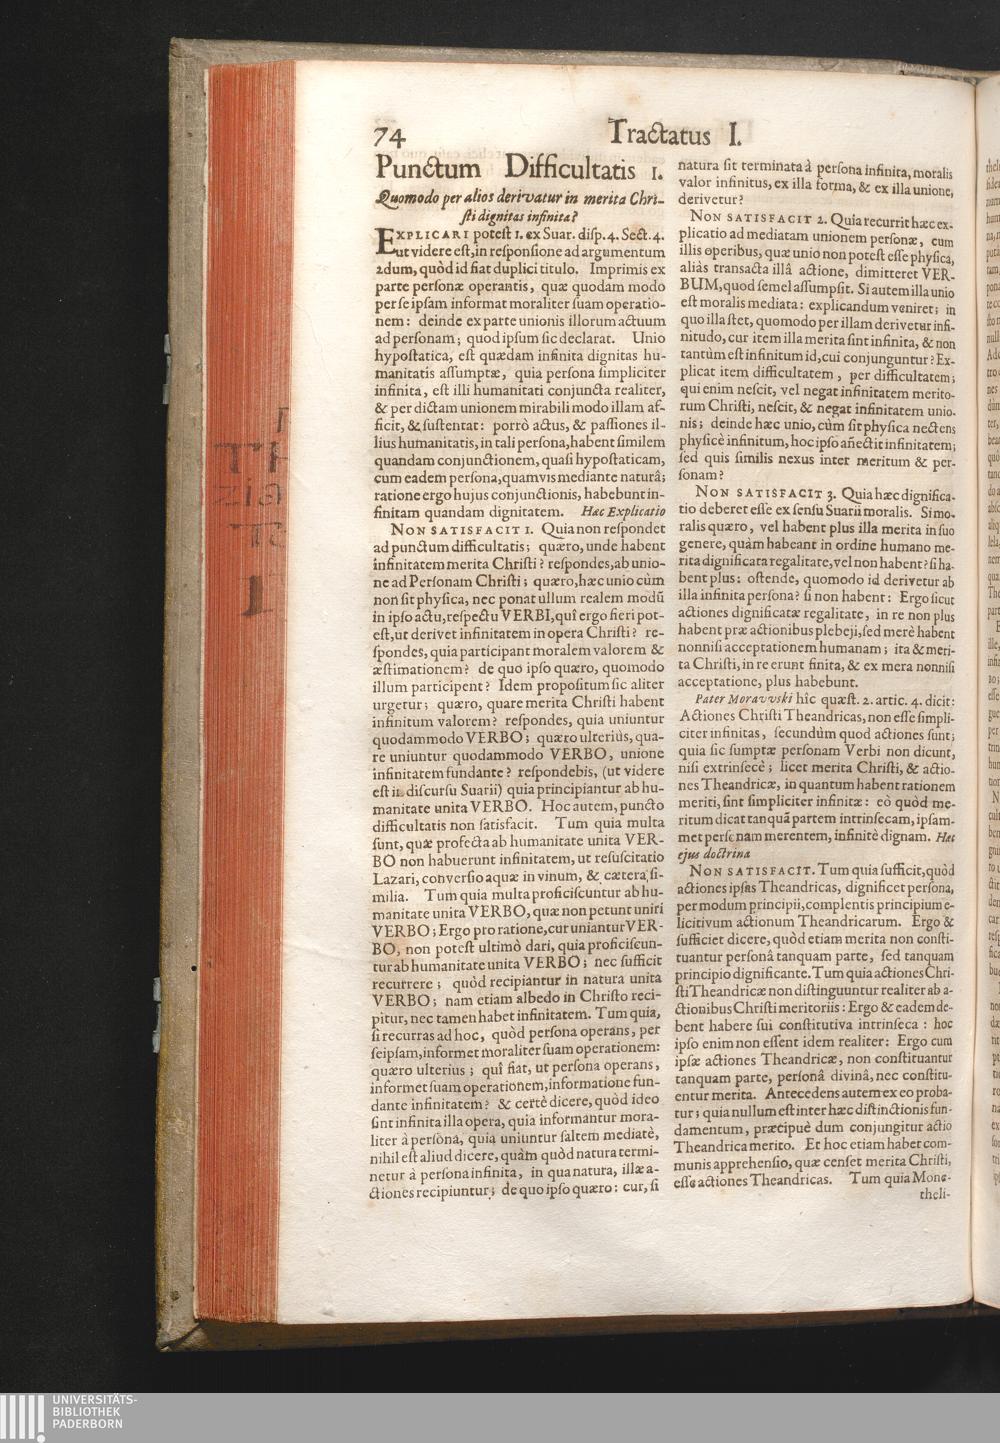 74
Tractatus I.
Punctum Difficultatis 1.
Quomodo per alios derivatur in merita Chri-
sti dignitas infinita?
EXPLICARI potest 1. ex Suar. disp. 4. Sect. 4.
ut videre est, in responsione ad argumentum
2dum, quòd id fiat duplici titulo. Imprimis ex
parte personæ operantis, quæ quodam modo
per se ipsam informat moraliter suam operatio-
nem: deinde ex parte unionis illorum actuum
ad personam; quod ipsum sic declarat. Unio
hypostatica, est quædam infinita dignitas hu-
manitatis assumptæ, quia persona simpliciter
infinita, est illi humanitati conjuncta realiter,
& per dictam unionem mirabili modo illam af-
ficit, & sustentat: porrò actus, & passiones il-
lius humanitatis, in tali persona, habent similem
quandam conjunctionem, quasi hypostaticam,
cum eadem persona, quamvis mediante naturâ;
ratione ergo hujus conjunctionis, habebunt in-
finitam quandam dignitatem. Hæc Explicatio
NON SATISFACIT 1. Quia non respondet
ad punctum difficultatis; quæro, unde habent
infinitatem merita Christi? respondes, ab unio-
ne ad Personam Christi; quæro, hæc unio cùm
non sit physica, nec ponat ullum realem modũ
in ipso actu, respectu VERBI, quî ergo fieri pot-
est, ut derivet infinitatem in opera Christi? re-
spondes, quia participant moralem valorem &
æstimationem? de quo ipso quæro, quomodo
illum participent? Idem propositum sic aliter
urgetur; quæro, quare merita Christi habent
infinitum valorem? respondes, quia uniuntur
quodammodo VERBO; quæro ulteriùs, qua-
re uniuntur quodammodo VERBO, unione
infinitatem fundante? respondebis, (ut videre
est in discursu Suarii) quia principiantur ab hu-
manitate unita VERBO. Hoc autem, puncto
difficultatis non satisfacit. Tum quia multa
sunt, quæ profecta ab humanitate unita VER-
BO non habuerunt infinitatem, ut resuscitatio
Lazari, conversio aquæ in vinum, & cætera si-
milia. Tum quia multa proficiscuntur ab hu-
manitate unita VERBO, quæ non petunt uniri
VERBO; Ergo pro ratione, cur uniantur VER-
BO, non potest ultimò dari, quia proficiscun-
tur ab humanitate unita VERBO; nec sufficit
recurrere; quòd recipiantur in natura unita
VERBO; nam etiam albedo in Christo reci-
pitur, nec tamen habet infinitatem. Tum quia,
si recurras ad hoc, quòd persona operans, per
seipsam, informet moraliter suam operationem:
quæro ulterius; quî fiat, ut persona operans,
informet suam operationem, informatione fun-
dante infinitatem? & certè dicere, quòd ideo
sint infinita illa opera, quia informantur mora-
liter à personâ, quia uniuntur saltem mediatè,
nihil est aliud dicere, quàm quòd natura termi-
netur à persona infinita, in qua natura, illæ a-
ctiones recipiuntur; de quo ipso quæro: cur, si
natura sit terminata à persona infinita, moralis
valor infinitus, ex illa forma, & ex illa unione,
derivetur?
NON SATISFACIT 2. Quia recurrit hæc ex-
plicatio ad mediatam unionem personæ, cum
illis operibus, quæ unio non potest esse physica,
aliàs transacta illâ actione, dimitteret VER-
BUM, quod semel assumpsit. Si autem illa unio
est moralis mediata: explicandum veniret; in
quo illa stet, quomodo per illam derivetur infi-
nitudo, cur item illa merita sint infinita, & non
tantùm est infinitum id, cui conjunguntur? Ex-
plicat item difficultatem, per difficultatem;
qui enim nescit, vel negat infinitatem merito-
rum Christi, nescit, & negat infinitatem unio-
nis; deinde hæc unio, cùm sit physica nectens
physicè infinitum, hoc ipso añectit infinitatem;
sed quis similis nexus inter meritum & per-
sonam?
NON SATISFACIT 3. Quia hæc dignifica-
tio deberet esse ex sensu Suarii moralis. Simo-
ralis quæro, vel habent plus illa merita in suo
genere, quàm habeant in ordine humano me-
rita dignificata regalitate, vel non habent? si ha-
bent plus: ostende, quomodo id derivetur ab
illa infinita persona? si non habent: Ergo sicut
actiones dignificatæ regalitate, in re non plus
habent præ actionibus plebeji, sed merè habent
nonnisi acceptationem humanam; ita & meri-
ta Christi, in re erunt finita, & ex mera nonnisi
acceptatione, plus habebunt.
Pater Moravvski hîc quæst. 2. artic. 4. dicit:
Actiones Christi Theandricas, non esse simpli-
citer infinitas, secundùm quod actiones sunt;
quia sic sumptæ personam Verbi non dicunt,
nisi extrinsecè; licet merita Christi, & actio-
nes Theandricæ, in quantum habent rationem
meriti, sint simpliciter infinitæ: eò quòd me-
ritum dicat tanquã partem intrinsecam, ipsam-
met personam merentem, infinitè dignam. Hæc
ejus doctrina
NON SATISFACIT. Tum quia sufficit, quòd
actiones ipsas Theandricas, dignificet persona,
per modum principii, complentis principium e-
licitivum actionum Theandricarum. Ergo &
sufficiet dicere, quòd etiam merita non consti-
tuantur personâ tanquam parte, sed tanquam
principio dignificante. Tum quia actiones Chri-
sti Theandricæ non distinguuntur realiter ab a-
ctionibus Christi meritoriis: Ergo & eadem de-
bent habere sui constitutiva intrinseca: hoc
ipso enim non essent idem realiter: Ergo cum
ipsæ actiones Theandricæ, non constituantur
tanquam parte, personâ divinâ, nec constitu-
entur merita. Antecedens autem ex eo proba-
tur; quia nullum est inter hæc distinctionis fun-
damentum, præcipuè dum conjungitur actio
Theandrica merito. Et hoc etiam habet com-
munis apprehensio, quæ censet merita Christi,
esse actiones Theandricas. Tum quia Mone-
theli-
UNIVERSITÄTS-
BIBLIOTHEK
PADERBORN